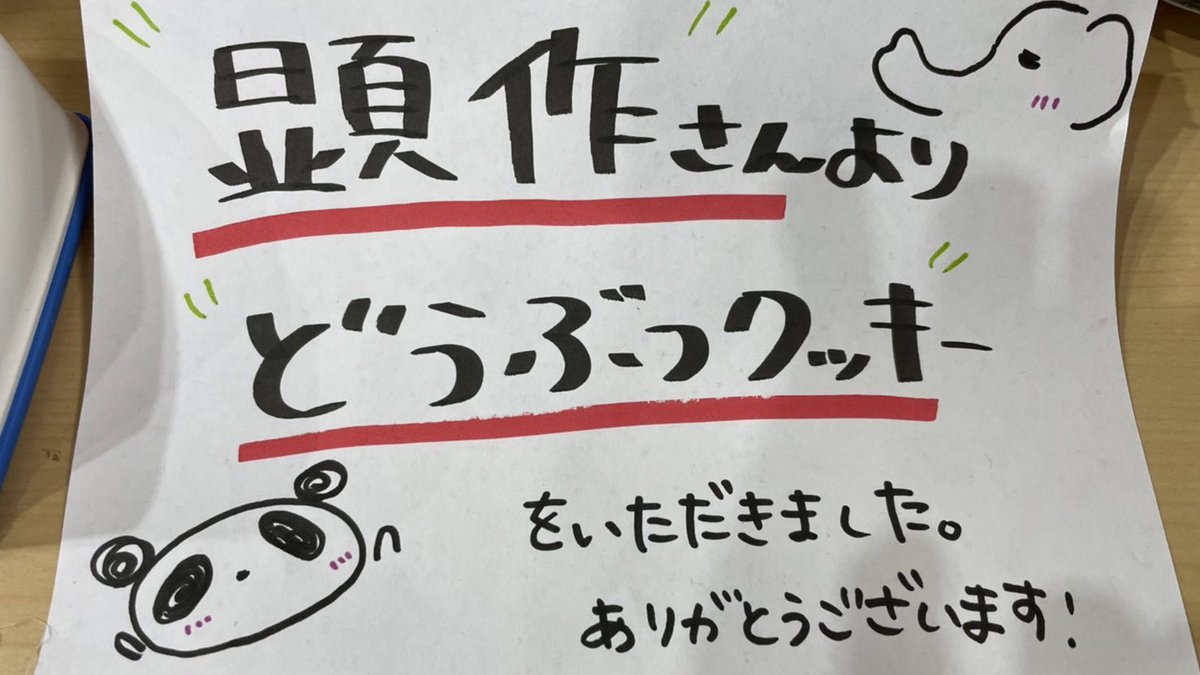 顕作さんより
どうぶつクッキー
をいただきました。
ありがとうございます!